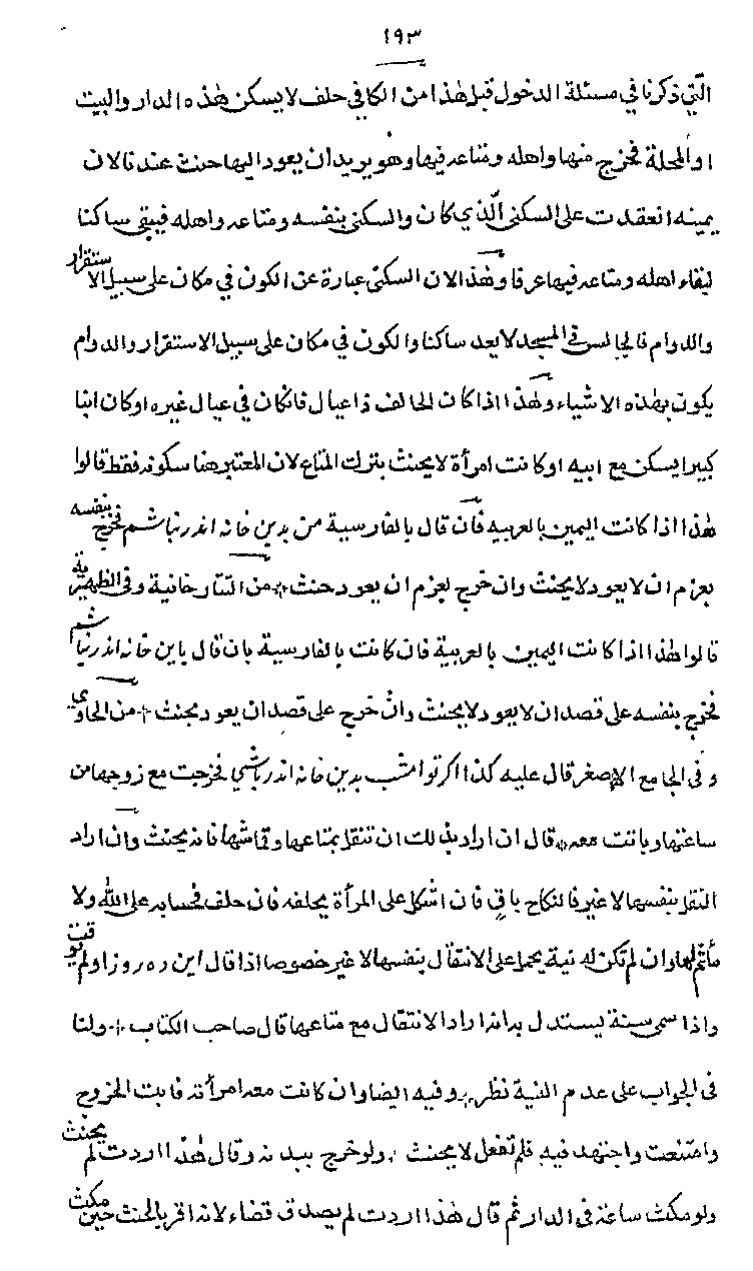 ١٩٣
الّتي ذكرنا في مسئلة الدخول قبل هٰذا من الكافي حلف لا يسكن هٰذه الدار والبيت
او المحلة فخرج منها واهله ومتاعه فيها وهو يريد ان يعود اليها حنث عندنا لان
يمينه انعقدت على السكنى الّذي كان والسكنى بنفسه ومتاعه واهله فيبقى ساكنا
لبقاء اهله ومتاعه فيها عرفا وهٰذا لان السكنى عبارة عن الكون في مكان على سبيل الاستقرار
والدوام فالجالس في المسجد لا يعد ساكنا والكون في مكان على سبيل الاستقرار والدوام
يكون بهٰذه الاشياء وهٰذا اذا كان الحالف ذا عيال فان كان في عيال غيره او كان ابنا
كبيرا يسكن مع ابيه او كانت امرأة لا يحنث بترك المتاع لان المعتبر هنا سكونه فقط قالوا
هٰذا اذا كانت اليمين بالعربية فان قال بالفارسية من بدين خانه اندر نباشم فخرج بنفسه
بعزم ان لا يعود لا يحنث وان خرج بعزم ان يعود حنث من التتارخانية وفي الظهيرية
قالوا هٰذا اذا كانت اليمين بالعربية فان كانت بالفارسية بان قال باين خانه اندر نباشم
فخرج بنفسه على قصد ان لا يعود لا يحنث وان خرج على قصد ان يعود يحنث من الحاوي
وفي الجامع الاصغر قال عليه كذا اكر تو امشب بدين خانه اندر باشي فخرجت مع زوجها من
ساعتها وباتت معه قال ان اراد بذلك ان تنقل بمتاعها وقماشها فانه يحنث وان اراد
النقل بنفسها لا غير فالنكاح باق فان اشكل على المرأة يحلفه فان حلف فحسابه على الله ولا
مأثم لها وان لم تكن له نية يحمل على الانتقال بنفسها لا غير خصوصا اذا قال اين ده روز او لم يوقت
واذا سمى سنة يستدل به انه اراد الانتقال مع متاعها قال صاحب الكتاب ولنا
في الجواب على عدم النية نظر وفيه ايضا وان كانت معه امرأته فابت الخروج
وامتنعت واجتهد فيه فلم تفعل لا يحنث ولو خرج ببدنه وقال هٰذا اردت لم يحنث
ولو مكث ساعة في الدار ثم قال هٰذا اردت لم يصدق قضاء لانه اقر بالحنث حين مكث